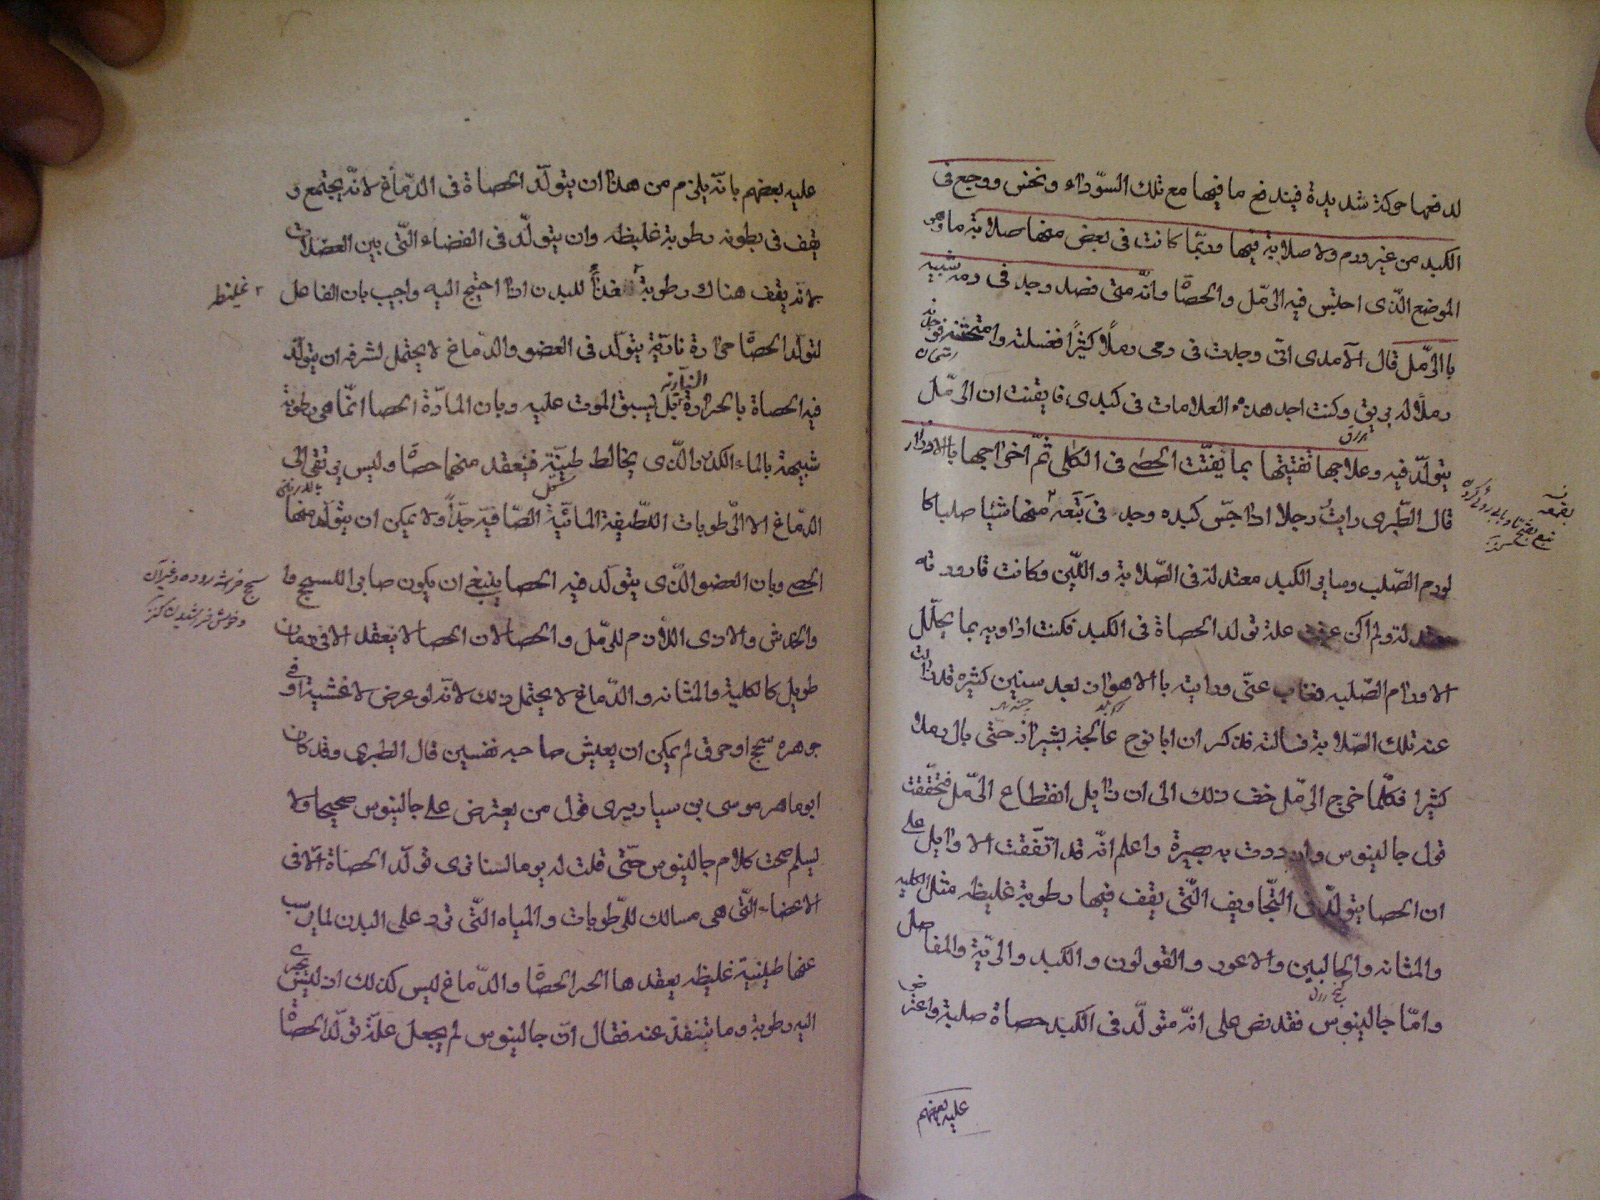 لدفعها حركة شديدة فيندفع ما فيها مع تلك السوداء ونخس ووجع فى
الكبد من غير ورم ولا صلابة فيها وربما كانت فى بعض منها صلابة ما وهى
الموضع الذى احتبس فيه الرمل والحصا وانه متى فصد وجد فى دمه شبيه
بالرمل قال الآمدى انى وجدت فى دمى رملا كثيرا فغسلته وامتحنته فوجدته
رملا له بريق وكنت اجد هذه العلامات فى كبدى فايقنت ان الرمل
يتولد فيه وعلاجها تفتيتها بما يفتت الحصى فى الكلى ثم اخراجها بالادرار
قال الطبرى رايت رجلا اذا جس كبده وجد فى بقعة منها شيئا صلبا كا
لورم الصلب وسائر الكبد معتدلة فى الصلابة واللين وكانت قارورته
معتدلة ولم اكن عرفت علة تولد الحصاة فى الكبد فكنت اداويه بما يحلل
الاورام الصلبه فغاب عنى ورايته بالاهواز بعد سنين كثيره قد زالت
عنه تلك الصلابة فسالته فذكر ان ابا نوح عالجه بشيراز حتى بال رملا
كثيرا فكلما خرج الرمل خف ذلك الى ان زايل انقطاع الرمل فتحققت
قول جالينوس وازددت به بصيرة واعلم انه قد اتفقت الاوايل على
ان الحصا يتولد فى التجاويف التى يقف فيها رطوبة غليظه مثل الكليه
والمثانه والحالبين والاعور والقولون والكبد والرية والمفاصل
واما جالينوس فقد نص على انه متولد فى الكبد حصاة صلبة واعترض
عليه بعضهم
عليه بعضهم بانه يلزم من هذا ان يتولد الحصاة فى الدماغ لانه يجتمع و
يقف فى بطونه رطوبة غليظه وان يتولد فى الفضاء التى بين العضلات
لانه يقف هناك رطوبة تغذيا للبدن اذا احتيج اليه واجيب بان الفاعل
غليظ
لتولد الحصا حرارة نارية يتولد فى العضو والدماغ لا يحتمل لشرفه ان يتولد
فيه الحصاة بالحرارة النارية بل يسبق الموت عليه وبان المادة الحصا انما هى رطوبة
شبيهة بالماء الكدر والذى يخالط طينية فينعقد منها حصا وليس يرتقى الى
الدماغ الا الرطوبات اللطيفة المائية الصافيه جدا ولا يمكن ان يتولد منها
الحصى وبان العضو الذى يتولد فيه الحصا ينبغى ان يكون صابر اللسحج
والخدش والاذى اللازم للرمل والحصا لان الحصا لا ينعقد الا فى زمان
طويل كالكلية والمثانه والدماغ لا يحتمل ذلك لانه لو عرض لاغشية او فى
جوهره سحج او حرق لم يمكن ان يعيش صاحبه نفسين قال الطبرى وقد كان
ابو ماهر موسى بن سيار يرى قول من يعترض على جالينوس صحيحا ولا
يسلم صحت كلام جالينوس حتى قلت له يوما لسنا نرى تولد الحصاة الا فى
الاعضاء التى هى مسالك للرطوبات والمياه التى ترد على البدن لما يرسب
عنها طينية غليظه يعقدها الحر الحصا والدماغ ليس كذلك اذ ليس يجرى
اليه رطوبة وما تنفذ عنه فقال ان جالينوس لم يجعل علة تولد الحصا